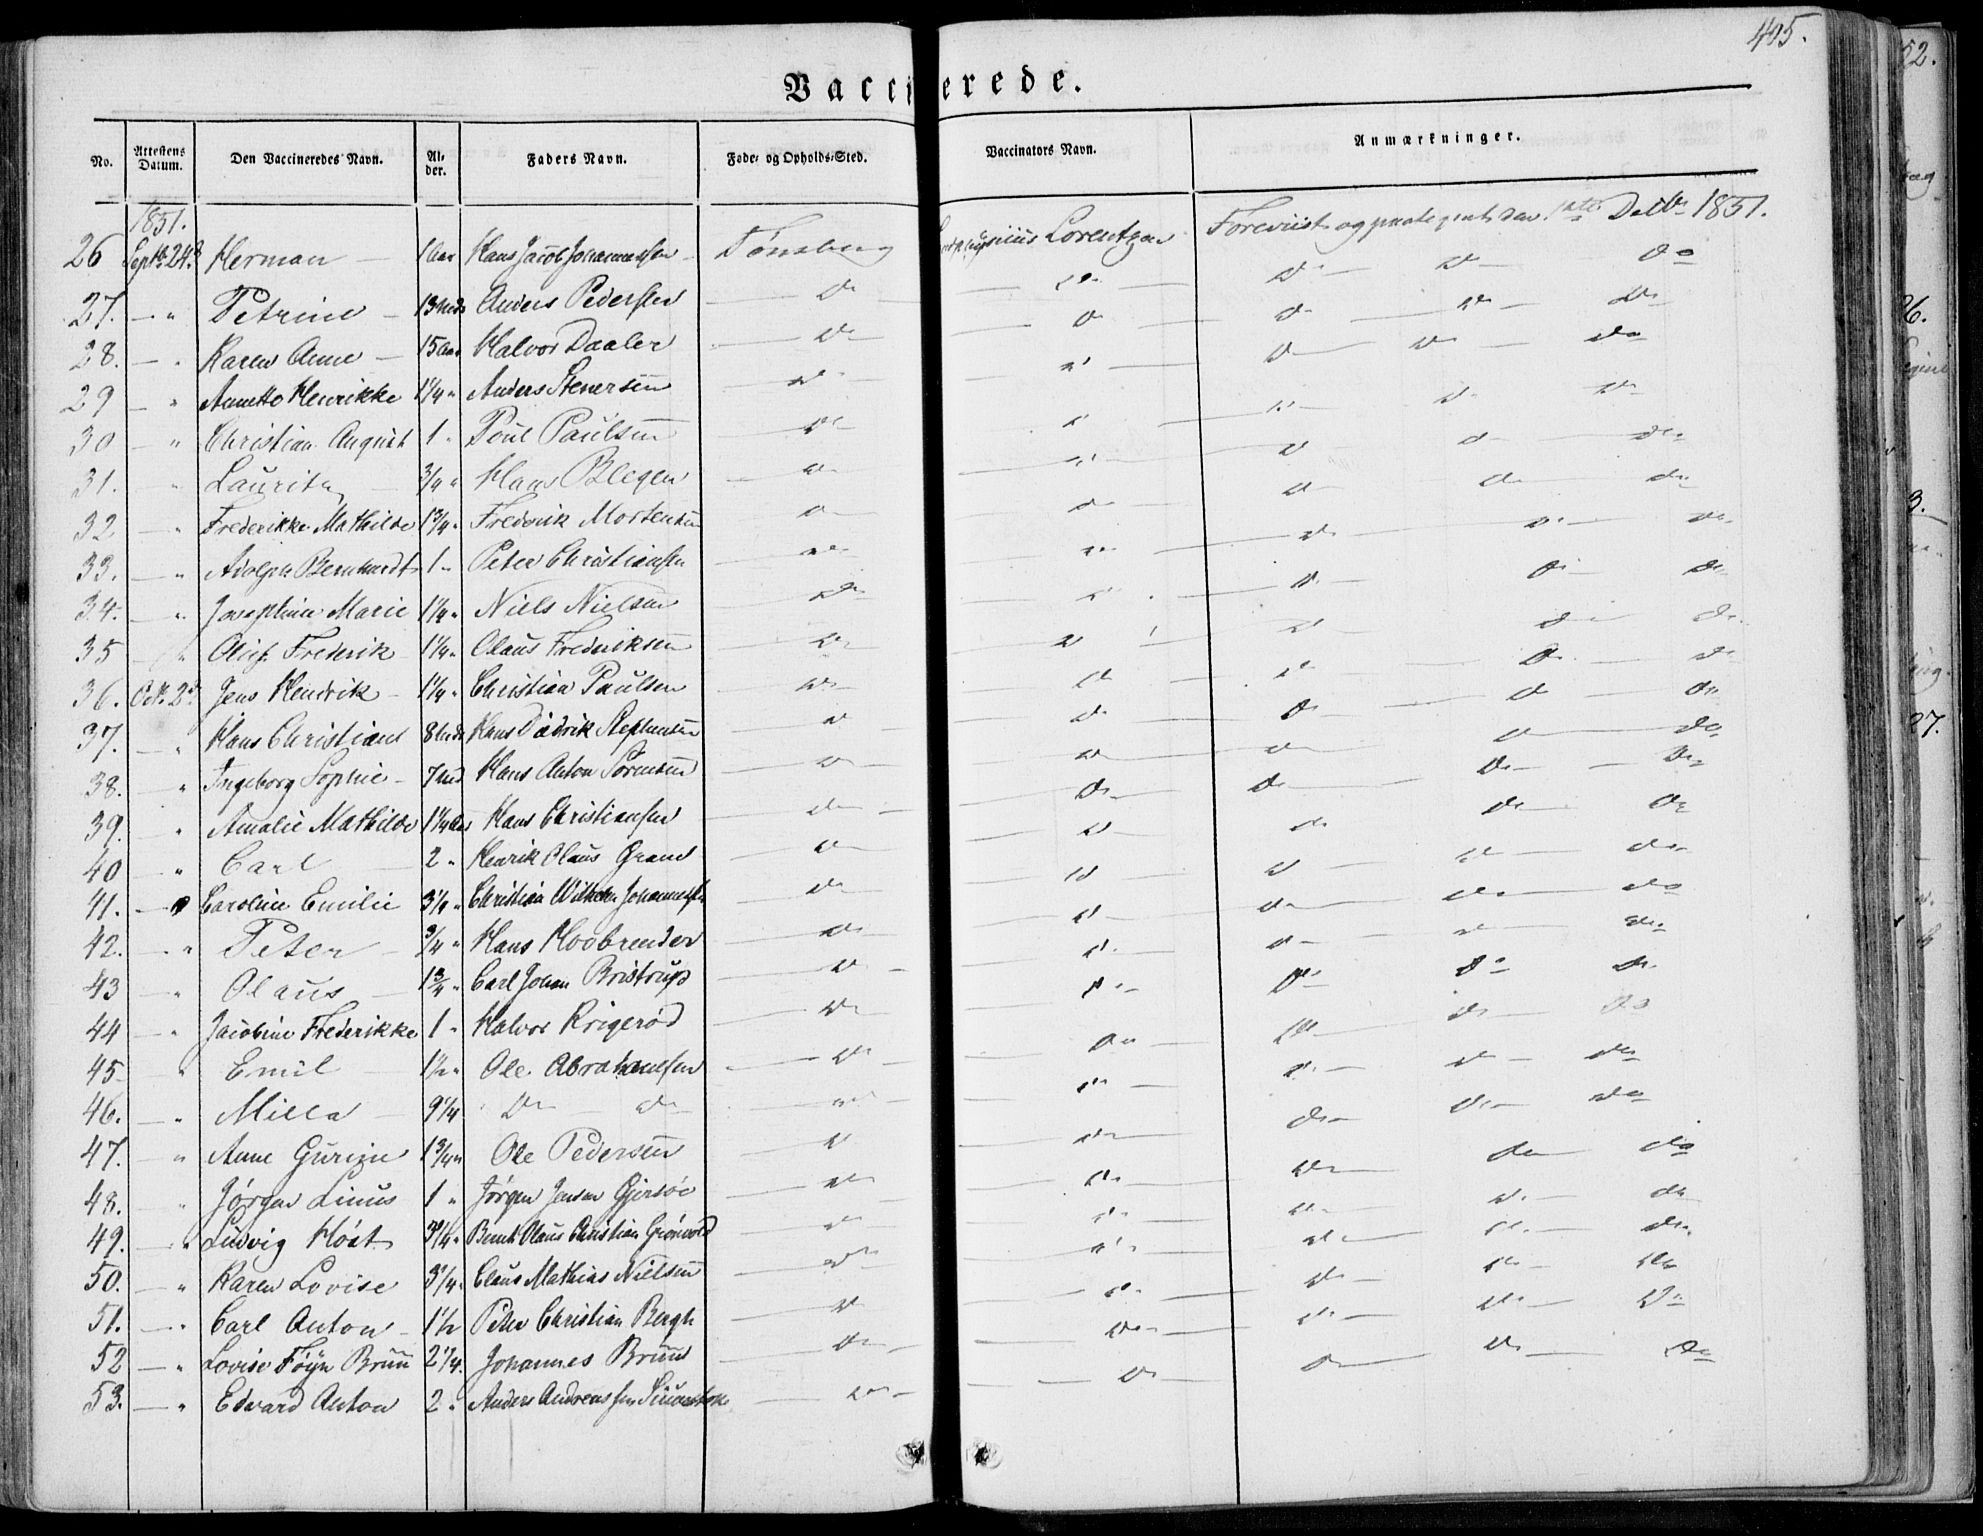 405.
Vaccinerede.
No. | Attestens Datum. | Den Vaccineredes Navn. | Al-der. | Faders Navn. | Føde- og Opholds-Sted. | Vaccinators Navn. | Anmærkninger.
1851.
26 Septb. 24d Herman 1 Aar Hans Jacob Johannessen Tønsberg Lorentzen Foreviist og den Decbr 1851.
27. — " Petrine 13 Mdr Anders Pedersen Do Do Do Do Do
28. — " Karen Anne 15 Aar Halvor Daaler Do Do Do Do Do
29 — " Annette Henrikke 1 1/4 " Anders Stenersen Do Do Do Do Do
30 — " Christian August 1 " Poul Paulsen Do Do Do Do Do
31. " Lauritz 3/4 " Hans Blegen Do Do Do Do Do
32. " Frederikke Mathilde 1 3/4 " Frederik Mortensen Do Do Do Do Do
33. — " Adolph Bernhardt 1 " Peter Christiansen Do Do Do Do Do
34. — " Josephine Marie 1 1/4 " Niels Nielsen Do Do Do Do Do
35 " Frederik 1 1/4 " Olaus Frederiksen Do Do Do Do Do
36. Oct. 2d Jens Hendrik 1 1/4 " Christian Paulsen Do Do Do Do Do
37. — " Hans Christian 8 Mdr Hans Didrik Stephensen Do Do Do Do Do
38. — " Ingeborg Sophie 7 Md Hans Anton Sørensen Do Do Do Do Do
39. — " Amalie Mathilde 1 1/4 Aar Hans Christiansen Do Do Do Do Do
40 — " Carl 2 " Henrik Olaus Do Do Do Do Do
41. — " Caroline Emilie 3 1/4 " Christian Wilhelm Johannessen Do Do Do Do Do
42. — " Peter 3/4 " Hans Do Do Do Do Do
43 — " Olaus 1 3/4 " Carl Johan Bristrup Do Do Do Do Do
44 — " Jacobine Frederikke 1 " Halvor Krigerød Do Do Do Do Do
45 " Emil 1 1/2 " Ole Abrahamsen Do Do Do Do Do
46. — " Milla 9 1/4 Do Do Do Do Do Do Do
47. — " Anne Gurine 1 3/4 " Ole Pedersen Do Do Do Do Do
48. " Jørgen Linus 1 " Jørgen Jensen Gjersøe Do Do Do Do Do
49. — " Ludvig Høst 3/4 " Bernt Olaus Christian Grønvold Do Do Do Do Do
50. — " Karen Lovise 3 1/4 " Claus Mathias Nielsen Do Do Do Do Do
51. — " Carl Anton 1 1/2 Peter Christian Bergh Do Do Do Do Do
52 — " Lovise Føyn Bruun 2 1/4. Johannes Bruun Do Do Do Do Do
53. — " Edvard Anton 2 " Anders Andreassen Do
52.
26.
3.
27.